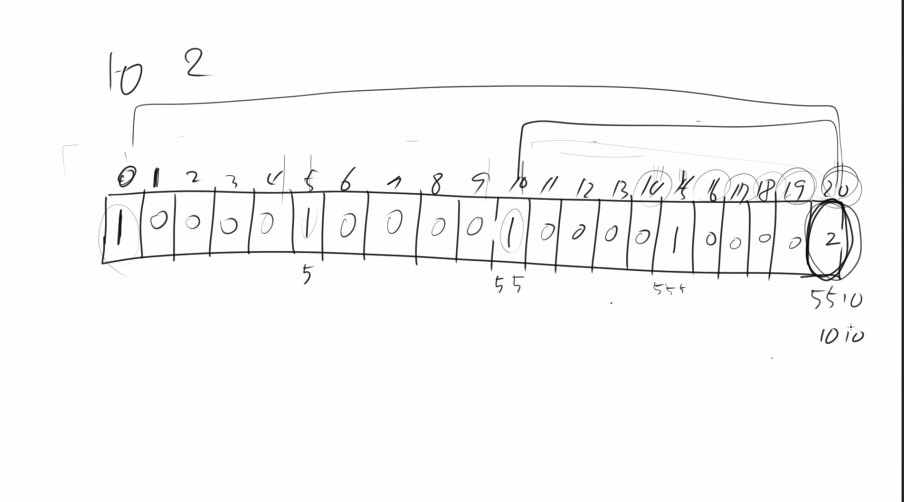 10 2
0 1 2 3 4 5 6 7 8 9 10 11 12 13 14 15 16 17 18 19 20
1 0 0 0 0 1 0 0 0 0 1 0 0 0 0 1 0 0 0 0 2
5 55 555 5510
1010